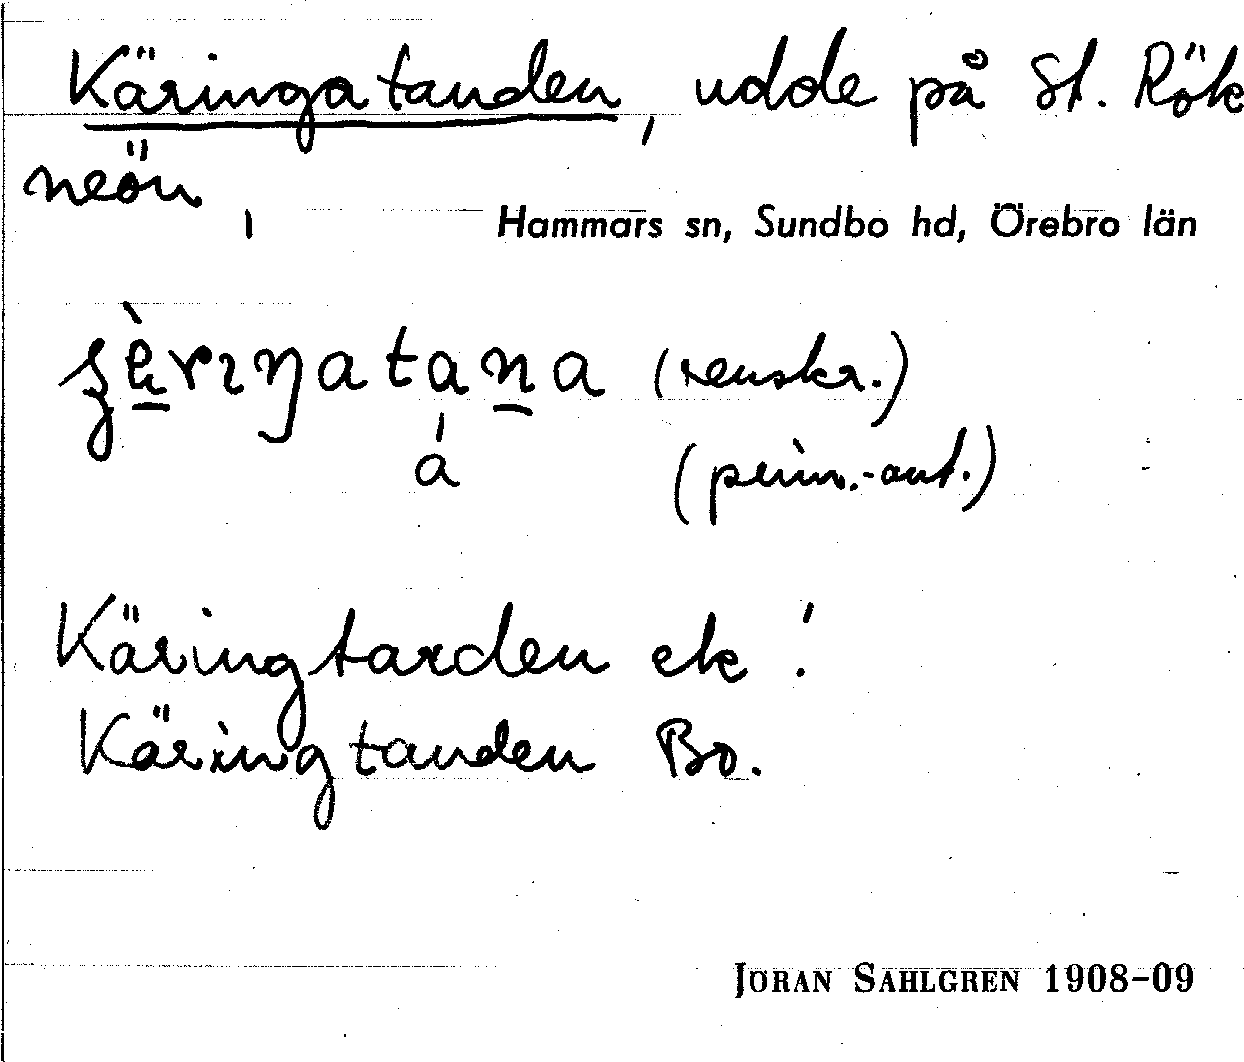 Käringatanden, udde på St. Rök
neön,
Hammars sn, Sundbo hd, Örebro län
(renskr.)
a (prim.-ant.)
Käringtarden ek!
Käringtanden Bo.
JÖRAN SAHLGREN 1908–09